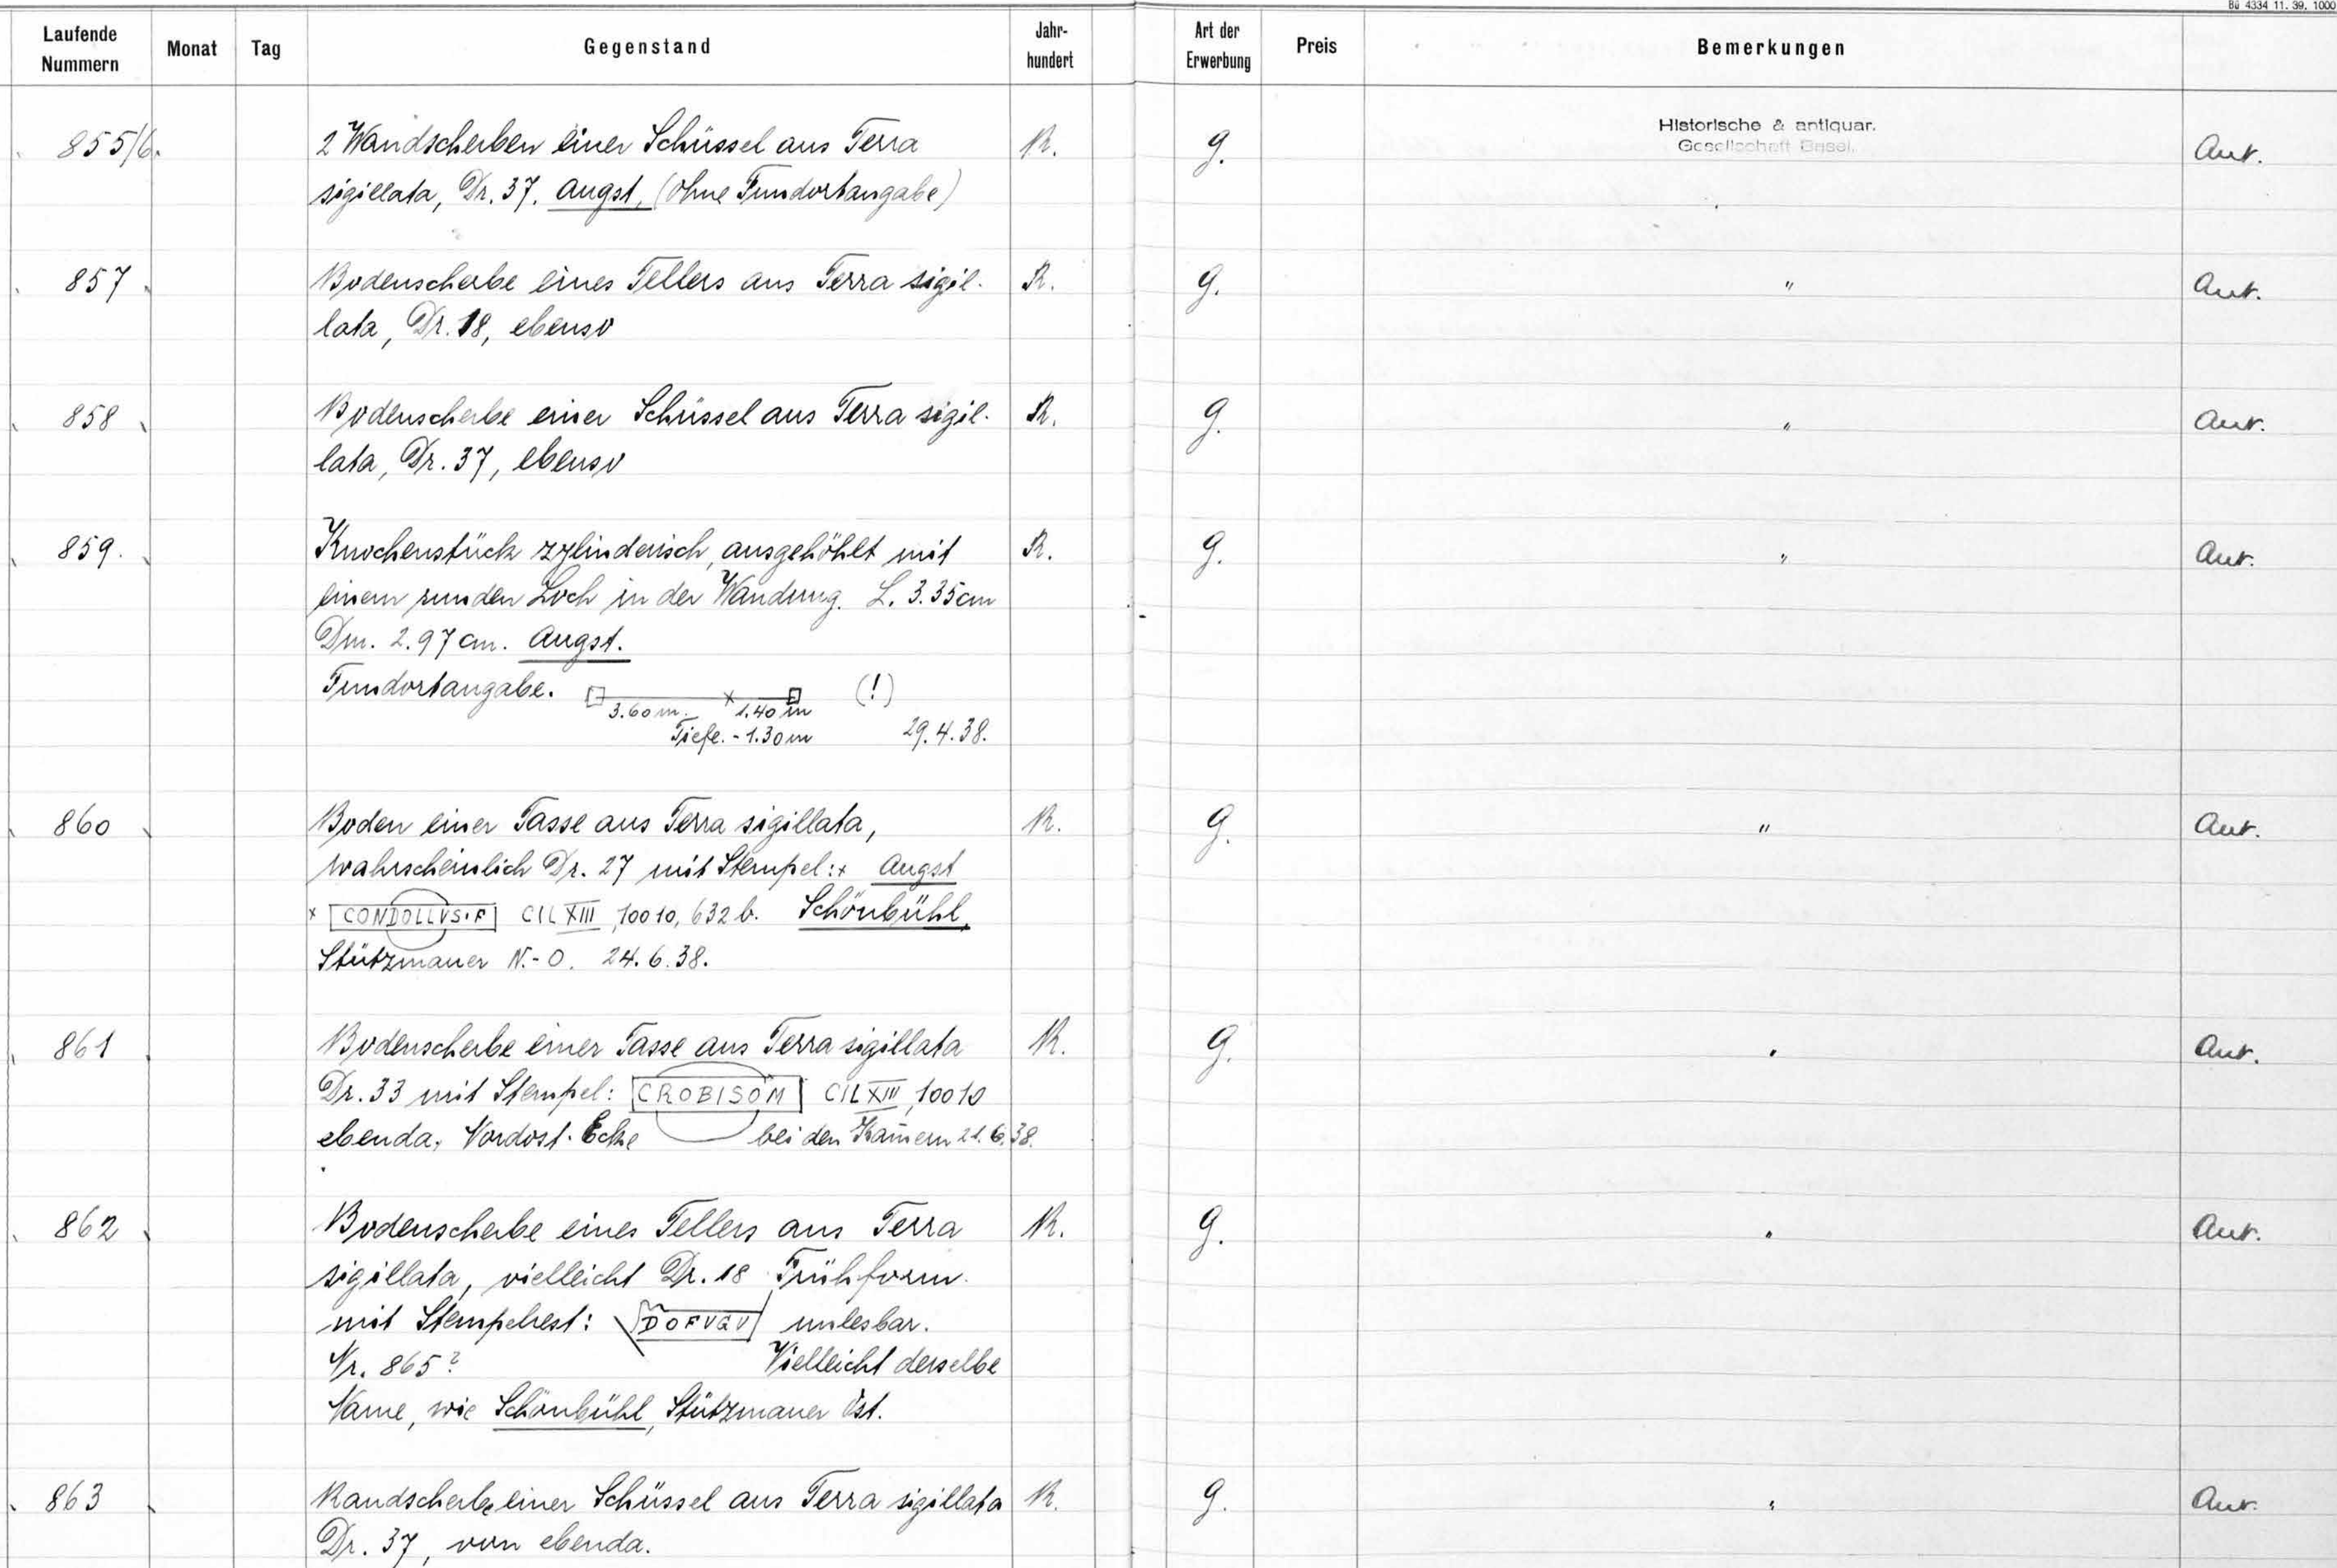 Bü 4334 11. 39. 1000
Laufende Nummern Monat Tag Gegenstand Jahrhundert Art der Erwerbung Preis Bemerkungen
855/6. 2 Wandscherben einer Schüssel aus Terra R. G. Historische & antiquar. Gesellschaft Basel. Aut.
sigillata, Dr. 37. Augst, (Ohne Fundortangabe)
857 Bodenscherbe eines Tellers aus Terra sigil- R. G. " Aut.
lata, Dr. 18, ebenso
858 Bodenscherbe einer Schüssel aus Terra sigil- R. G. " Aut.
lata, Dr. 37, ebenso
859. Knochenstück zylinderisch, ausgehöhlt mit R. G. " Aut.
einem runden Loch in der Wandung. L. 3.35cm
Dm. 2.97 cm. Augst.
Fundortangabe. (!)
3.60 m. x 1.40 m
Tiefe. - 1.30 m 29.4.38.
860 Boden einer Tasse aus Terra sigillata, R. G. " Aut.
wahrscheinlich Dr. 27 mit Stempel: x Augst
x CONDOLLVS·F CIL XIII, 10010, 632 b. Schönbühl,
Stützmauer N.-O. 24.6.38.
861 Bodenscherbe einer Tasse aus Terra sigillata R. G. " Aut.
Dr. 33 mit Stempel: CROBISOM CIL XIII, 10010
ebenda, Nordost-Ecke bei den Kam̄ern 21.6.38.
862 Bodenscherbe eines Tellers aus Terra R. G. " Aut.
sigillata, vielleicht Dr. 18 Frühform.
mit Stempelrest: DOFVGV unlesbar.
Nr. 865? Vielleicht derselbe
Name, wie Schönbühl, Stützmauer Ost.
863 Randscherbe einer Schüssel aus Terra sigillata R. G. " Aut.
Dr. 37, von ebenda.